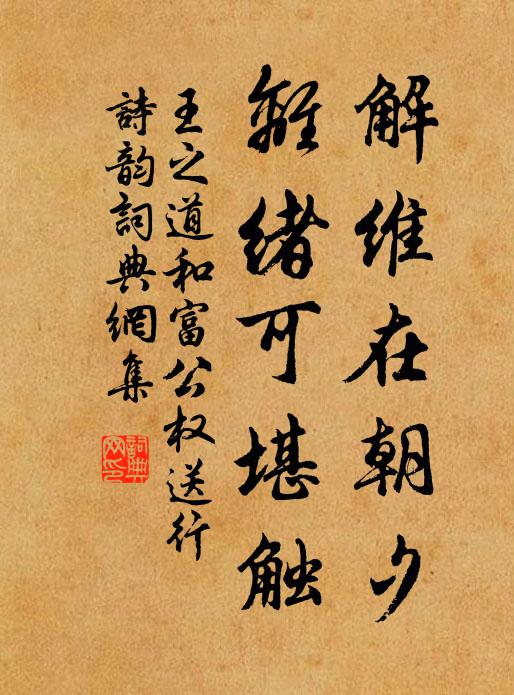 解维在朝夕
離绪可堪触
王之道和富公权送行
詩韵詞典網集
詞典网印